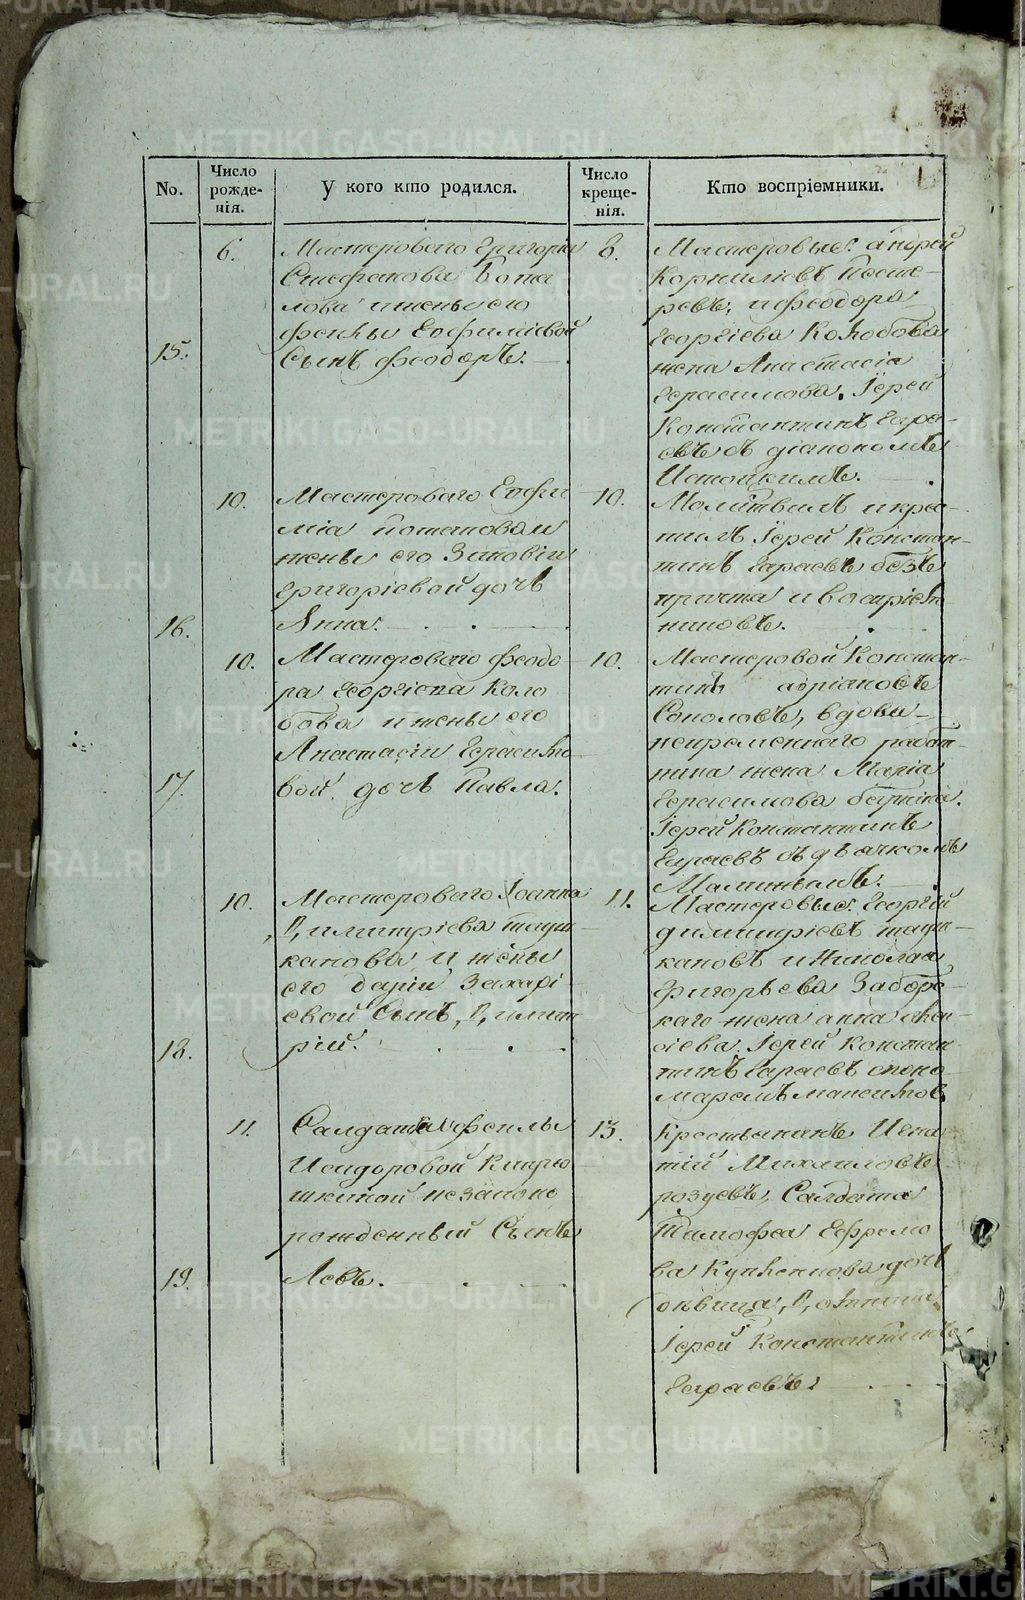 No.
Число рожде- нія.
У кого кто родился.
Число креще- нія.
Кто воспріемники.
15.
6.
Мастероваго Григорія
Стефанова Пота
лова и жены его
Феклы Евфиміевой
Сынъ Феодоръ.
8.
Мастеровые: Андрей
Корниліевъ Песте-
ревъ, и Феодора
Георгіева Колобова
жена Анастасія
Герасимова. Іерей
Константинъ
съ діакономъ
16.
10.
Мастероваго Евфи
мія Потапова и
жены его Зиновіи
Григоріевой дочь
Анна.
10.
Молитвилъ и крес-
тилъ Іерей Констан-
тинъ безъ
причта и воспріем-
никовъ.
17.
10.
Мастероваго Феодо
ра Георгіева Коло
бова и жены его
Анастасіи Герасимо
вой дочь Павла.
10.
Мастеровой Констан-
тинъ Адріановъ
Соколовъ, вдова
непременнаго работ-
ника жена Марія
Герасимова
Іерей Константинъ
съ дьячкомъ
18.
10.
Мастероваго Іоанна
Димитріева
и жены
его Даріи Захарі-
евой Сынъ Димит
рій.
11.
Мастеровые: Георгій
Димитріевъ
и Николая
Григорьева
каго жена Анна
Іерей Констан
тинъ съ поно-
маремъ
19.
11.
Салдатки Феклы
Исидоровой Кирю
шкиной незаконо
рожденный Сынъ
Левъ.
13.
Крестьянинъ Игна
тій Михаиловъ
Салдата
Тимофея Ефремо
ва дочь
девица,
Іерей Константинъ
METRIKI.GASO-URAL.RU